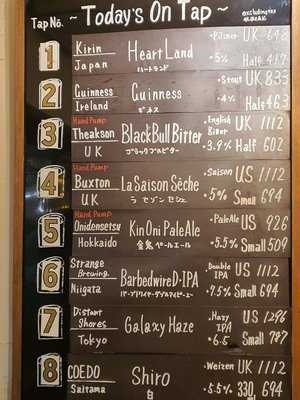 Tap No. ~ Today's On Tap ~
1 Kirin Heart Land • Pilsner UK 648
Japan ハートランド • 5% Half 417
2 Guinness Guinness • Stout UK 833
Ireland ギネス • 4% Half 463
Hand Pump
3 Theakson Black Bull Bitter • English Bitter UK 1112
UK ブラックブルビター • 3.9% Half 602
Hand Pump
4 Buxton La Saison Sèche • Saison US 1112
UK ラ セゾン セシェ • 5% Small 694
Hand Pump
5 Onidensetsu Kin Oni Pale Ale • Pale Ale US 926
Hokkaido 金鬼ペールエール • 5.5% Small 509
6 Strange Brewing Barbedwire D•IPA • Double IPA US 1112
Niigata • 7.5% Small 694
7 Distant Shores Galaxy Haze • Hazy IPA US 1296
Tokyo • 6.5 Small 787
8 COEDO Shiro • Weizen UK 1112
Saitama 白 • 5.5% 330 694